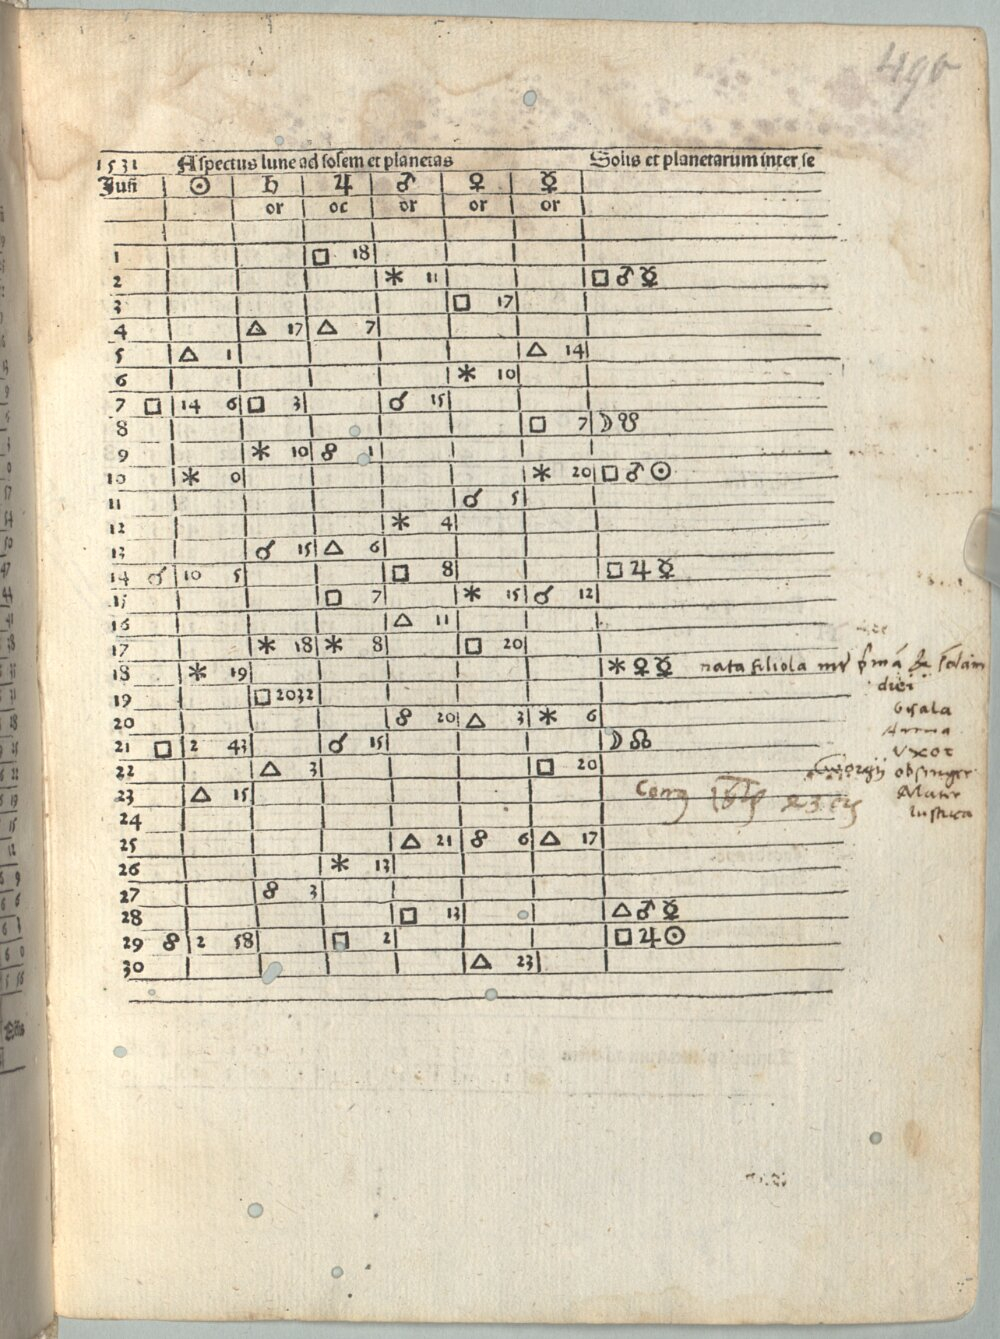 490
1531 Aspectus lune ad solem et planetas Solis et planetarum inter se
Juni ☉ ♄ ♃ ♂ ♀ ☿
or oc or or or
1 □ 18
2 ✶ 11 □ ♂ ☿
3 □ 17
4 △ 17 △ 7
5 △ 1 △ 14
6 ✶ 10
7 □ 14 6 □ 3 ☌ 15
8 □ 7 ☽ ☋
9 ✶ 10 ☍ 1
10 ✶ 0 ✶ 20 □ ♂ ☉
11 ☌ 5
12 ✶ 4
13 ☌ 15 △ 6
14 ☌ 10 5 □ 8 □ ♃ ☿
15 □ 7 ✶ 15 ☌ 12
16 △ 11
17 ✶ 18 ✶ 8 □ 20
18 ✶ 19 ✶ ♀ ☿ nata filiola
diei
19 □ 2032
20 ☍ 20 △ 3 ✶ 6
Anna
21 □ 2 43 ☌ 15 ☽ ☊
Uxor
22 △ 3 □ 20
Georgij
23 △ 15
Mater
24
25 △ 21 ☍ 6 △ 17
26 ✶ 13
27 ☍ 3
28 □ 13 △ ♂ ☿
29 ☍ 2 58 □ 2 □ ♃ ☉
30 △ 23